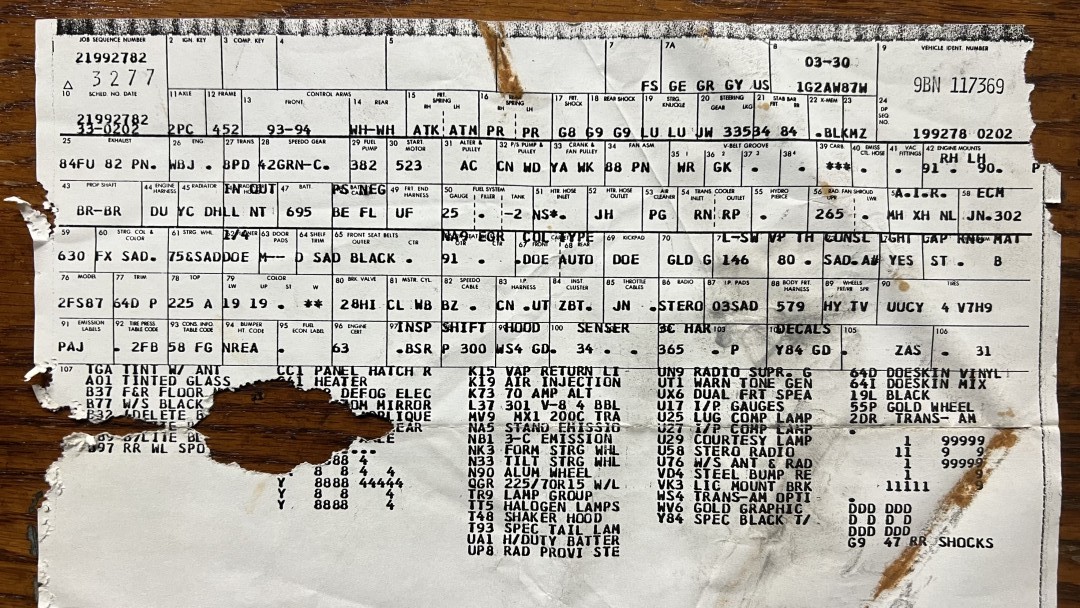 JOB SEQUENCE NUMBER 2 IGN. KEY 3 COMP. KEY 4 5 7 7A 8 9 VEHICLE IDENT. NUMBER
21992782 03-30
3277 FS GE GR GY US 1G2AW87W 9BN 117369
10 SCHED. NO. DATE 11 AXLE 12 FRAME 13 FRONT CONTROL ARMS 14 REAR 15 FRT. SPRING RH LH 16 SPRING RH LH 17 FRT. SHOCK 18 REAR SHOCK 19 STRG. KNUCKLE 20 STEERING GEAR LKG 21 STAB BAR FRT RR 22 X-MEM 23 24 DP SEQ. NO.
21992782
33-0202 2PC 452 93-94 WH-WH ATK ATM PR PR G8 G9 G9 LU LU JW 33534 84 .BLKMZ 199278 0202
25 EXHAUST 26 ENG. 27 TRANS. 28 SPEEDO GEAR 29 FUEL PUMP 30 START. MOTOR 31 ALTER & PULLEY 32 P/S PUMP & PULLEY 33 CRANK & FAN PULLEY 34 FAN ASM 35 36 37 38 V-BELT GROOVE 39 CARB 40 EMISS CTL HOSE 41 VAC FITTINGS 42 ENGINE MOUNTS
RH LH
84FU 82 PN. WBJ . 8PD 42GRN-C. 382 523 AC CN WD YA WK 88 PN WR GK . . *** . 91 . 90. P
43 PROP SHAFT 44 ENGINE HARNESS 45 RADIATOR IN OUT 47 BATT. PS NEG 49 FRT. END HARNESS 50 GAUGE FUEL SYSTEM FILLER TANK 51 HTR. HOSE INLET 52 HTR. HOSE OUTLET 53 AIR CLEANER 54 TRANS. COOLER INLET OUTLET 55 HYDRO PIERCE 56 RAD. FAN SHROUD UPR LWR A.I.R. 58 ECM
BR-BR DU YC DHLL NT 695 BE FL UF 25 . -2 NS*. JH PG RN RP . 265 . MH XH NL JN.302
59 60 STRG COL & COLOR 61 STRG. WHL 1/4 63 DOOR PADS 64 SHELF TRIM 65 FRONT SEAT BELTS OUTER CTR NA9 EGR COL TYPE 69 KICKPAD 70 L-SW VP TH CONSL LGHT GAP RNG MAT
630 FX SAD. 75&SADDOE M-- D SAD BLACK . 91 . .DOE AUTO DOE GLD G 146 80 . SAD.A# YES ST . B
76 MODEL 77 TRIM 78 TOP 79 COLOR LW UP ST W 80 BRK VALVE 81 MSTR. CYL. 82 SPEEDO CABLE 83 I.P. HARNESS 84 INST CLUSTER 85 ANT. CABLE 86 RADIO 87 I.P. PADS 88 BODY FRT. HARNESS 89 WHEELS FRT/RR SPR 90 TIRES
2FS87 64D P 225 A 19 19 . ** 28HI CL WB BZ . CN .UT ZBT. JN .STERO 03SAD 579 HY TV UUCY 4 V7H9
91 EMISSION LABELS 92 TIRE PRESS. TABLE CODE 93 CONS. INFO. TABLE CODE 94 BUMPER HT CODE 95 FUEL ECON LABEL 96 ENGINE CERT INSP SHIFT HOOD 100 SENSER 3C HAR 103 DECALS 105 106
PAJ . 2FB 58 FG NREA . 63 .BSR P 300 WS4 GD. 34 . . 365 . P Y84 GD . ZAS . 31
107 TGA TINT W/ ANT CC1 PANEL HATCH R K15 VAP RETURN LI UN9 RADIO SUPR. G 64D DOESKIN VINYL
A01 TINTED GLASS HEATER K19 AIR INJECTION UT1 WARN TONE GEN 64I DOESKIN MIX
B37 F&R FLOOR DEFOG ELEC K73 70 AMP ALT UX6 DUAL FRT SPEA 19L BLACK
B77 W/S BLACK MIRROR L37 301 V-8 4 BBL U17 I/P GAUGES 55P GOLD WHEEL
DELETE MV9 MX1 200C TRA U25 LUG COMP LAMP 2DR TRANS- AM
NA5 STAND EMISSIO U27 I/P COMP LAMP .
NB1 3-C EMISSION U29 COURTESY LAMP 1 99999
B97 RR WL SPO NK3 FORM STRG WHL U58 STERO RADIO 11 9 9
8888 4 N33 TILT STRG WHL U76 W/S ANT & RAD 1 99999
8 8 4 4 N90 ALUM WHEEL VD4 STEEL BUMP RE 1 9
Y 8888 44444 QGR 225/70R15 W/L VK3 LIC MOUNT BRK 11111
Y 8 8 4 TR9 LAMP GROUP WS4 TRANS-AM OPTI .
Y 8888 4 TT5 HALOGEN LAMPS WV6 GOLD GRAPHIC DDD DDD
T48 SHAKER HOOD Y84 SPEC BLACK T/ D D D D
T93 SPEC TAIL LAM DDD DDD
UA1 H/DUTY BATTER G9 47 RR SHOCKS
UP8 RAD PROVI STE